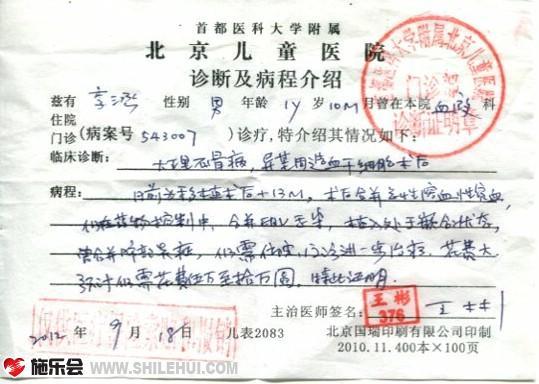 首都医科大学附属
北京儿童医院
诊断及病程介绍
兹有 李泓 性别 男 年龄 1Y 岁 10M 月曾在本院 血液 科
住院
门诊(病案号 543007)诊疗,特介绍其情况如下:
临床诊断: 大理石骨病,异基因造血干细胞术后
病程: 目前为移植术后+13M,术后合并
仍在药物控制中,合并EBV 植入处于嵌合状态,
曾合并 仍需住院,门诊进一步治疗,花费大
预计仍需花费伍万至拾万圆,特此证明。
主治医师签名: 王彬 376 王彬
2012 年 9 月 18 日 儿表2083
北京国瑞印刷有限公司印制
2010.11.400本×100页
首都医科大学附属北京儿童医院
门诊部
诊断证明章
施乐会 WWW.SHILEHUI.COM